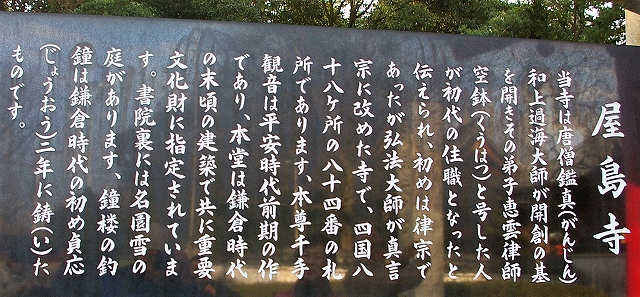 屋島寺
当寺は唐僧鑑真(がんじん)
和上過海大師が開創の基
を開きその弟子恵雲律師
空鉢(くうはつ)と号した人
が初代の住職となったと
伝えられ、初めは律宗で
あったが弘法大師が真言
宗に改めた寺で、四国八
十八ヶ所の八十四番の札
所であります、本尊千手
観音は平安時代前期の作
であり、本堂は鎌倉時代
の末頃の建築で共に重要
文化財に指定されていま
す。書院裏には名園雪の
庭があります、鐘楼の釣
鐘は鎌倉時代の初め貞応
(じょうおう)二年に鋳(い)た
ものです。